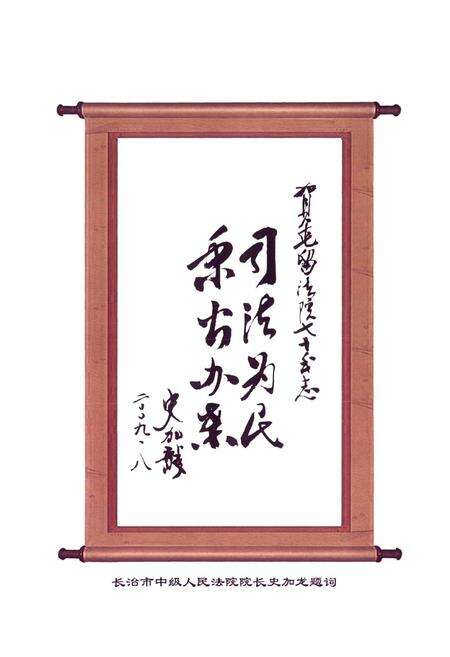 贺屯留法院七十年志
司法为民
秉公办案
史加龙
二〇〇九·八
长治市中级人民法院院长史加龙题词